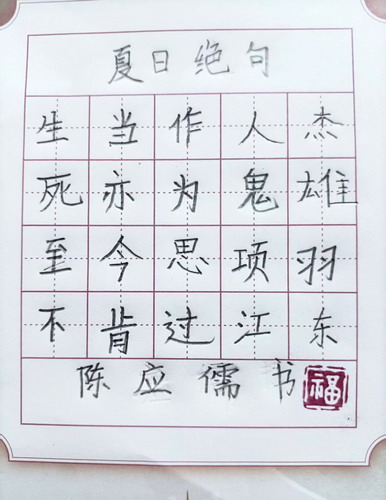 夏日绝句
生当作人杰
死亦为鬼雄
至今思项羽
不肯过江东
陈应儒书 福